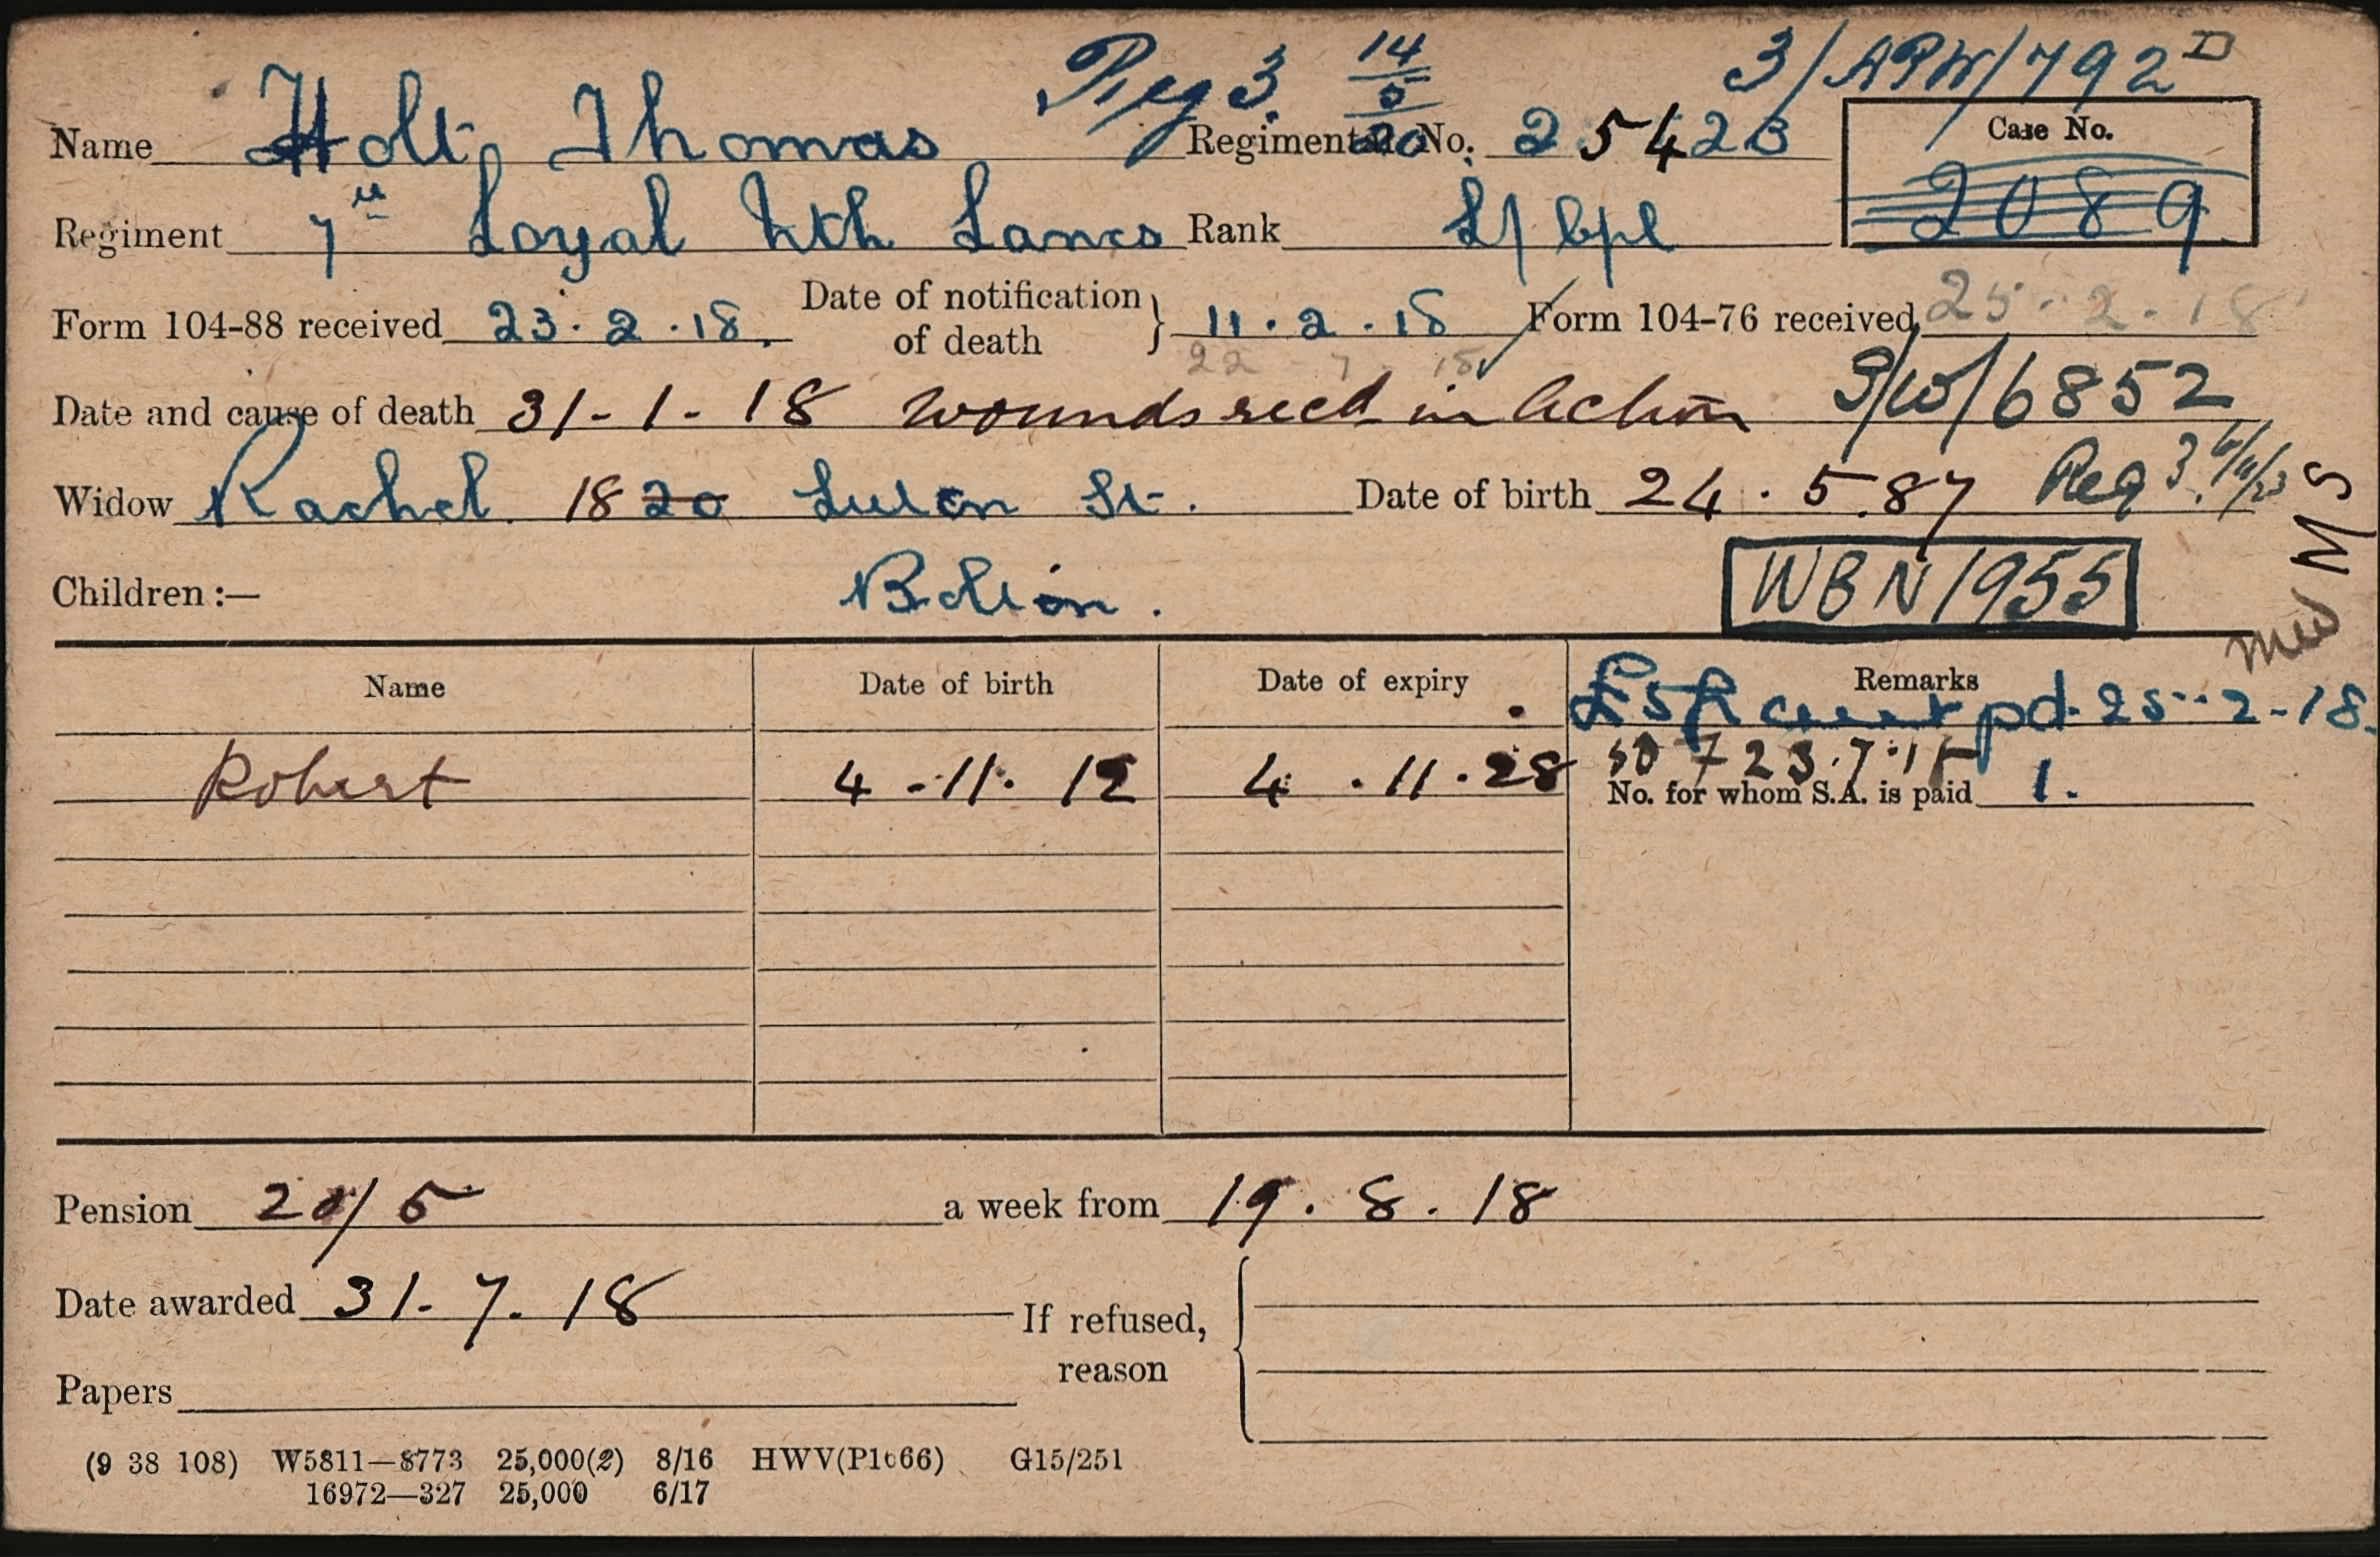 Reg 3. 14/5/20 3/APW/792 D
Name Holt, Thomas Regimental No. 25423 Case No.
2089
Regiment 7th Loyal Nth Lancs Rank L/Cpl
Form 104-88 received 23.2.18. Date of notification of death } 11.2.18 Form 104-76 received 25.2.18
22 7 18
Date and cause of death 31-1-18 Wounds recd in Action 3/W/6852
Widow Rachel. 18 20 St. Date of birth 24.5.87 Reg 3.
Bolton.
Children:— WBN/1955
M S
Name Date of birth Date of expiry Remarks
£5 pd. 25-2-18.
Robert 4-11-12 4.11.28
No. for whom S.A. is paid 1.
Pension 20/5 a week from 19.8.18
Date awarded 31.7.18 If refused, reason
Papers
(9 38 108) W5811—8773 25,000(2) 8/16 HWV(P1666) G15/251
16972—327 25,000 6/17